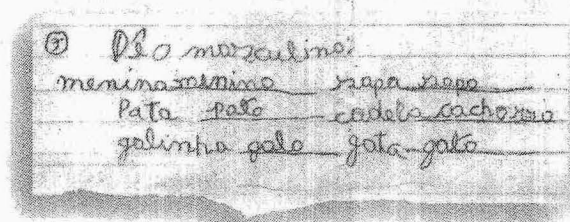 ② Dê o masculino:
menina menino sapa sapo
Pata pato cadela cachorro
galinha galo gata gato